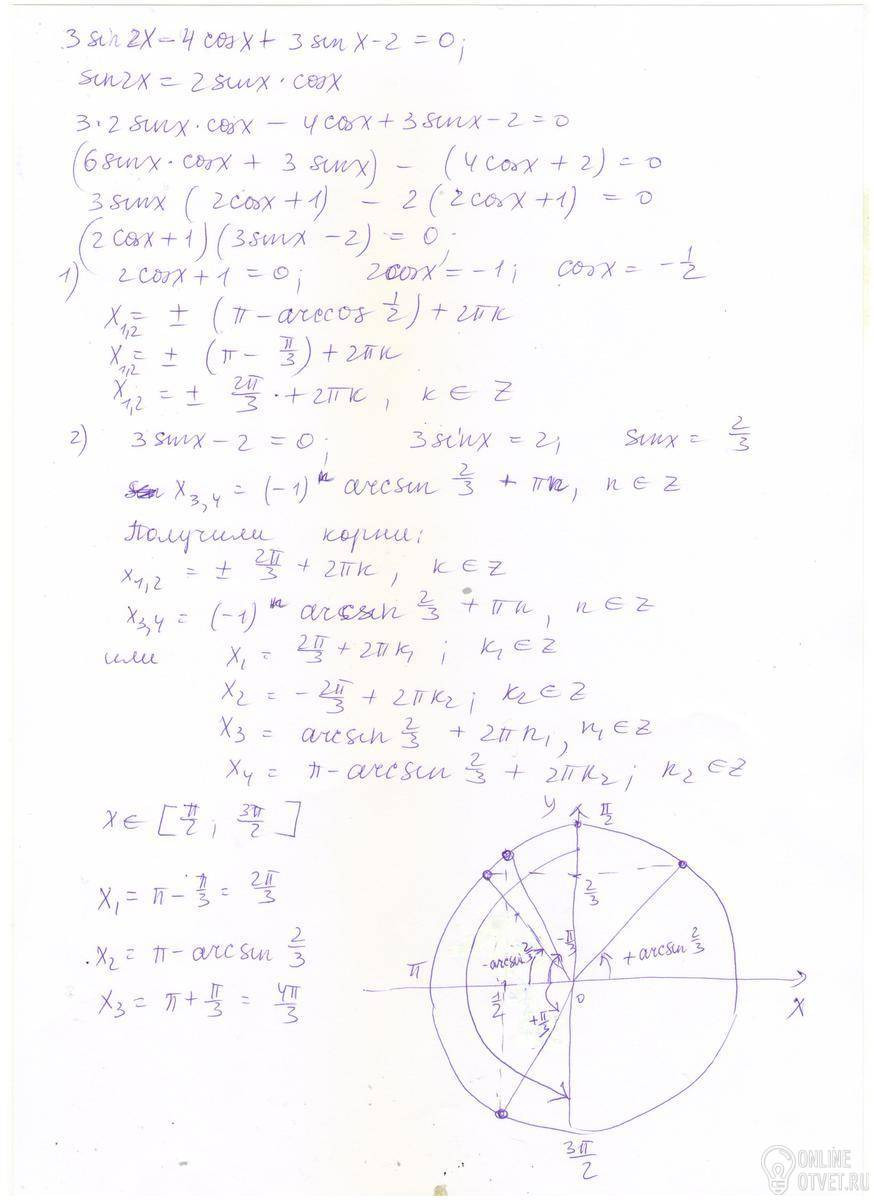 3 sin2x - 4cosx + 3 sinx - 2 = 0;
sin2x = 2sinx · cosx
3·2 sinx·cosx - 4cosx + 3sinx - 2 = 0
(6sinx·cosx + 3 sinx) - (4cosx + 2) = 0
3sinx ( 2cosx + 1) - 2 ( 2cosx + 1) = 0
(2cosx + 1)(3sinx - 2) = 0;
1) 2cosx + 1 = 0; 2cosx = -1; cosx = -1/2
x₁,₂ = ± (π - arccos 1/2) + 2πk
x₁,₂ = ± (π - π/3) + 2πk
x₁,₂ = ± 2π/3 + 2πk, k ∈ Z
2) 3sinx - 2 = 0; 3sinx = 2; sinx = 2/3
x₃,₄ = (-1)ⁿ arcsin 2/3 + πn, n ∈ Z
Получили корни:
x₁,₂ = ± 2π/3 + 2πk, k ∈ Z
x₃,₄ = (-1)ⁿ arcsin 2/3 + πn, n ∈ Z
или x₁ = 2π/3 + 2πk₁; k₁ ∈ Z
x₂ = -2π/3 + 2πk₂; k₂ ∈ Z
x₃ = arcsin 2/3 + 2πn₁, n₁ ∈ Z
x₄ = π - arcsin 2/3 + 2πn₂; n₂ ∈ Z
x ∈ [π/2; 3π/2]
x₁ = π - π/3 = 2π/3
x₂ = π - arcsin 2/3
x₃ = π + π/3 = 4π/3
y π/2
2/3
-arcsin 2/3 -π/3 +arcsin 2/3
π
1/2 0 x
+π/3
3π/2
ONLINE
OTVET.RU